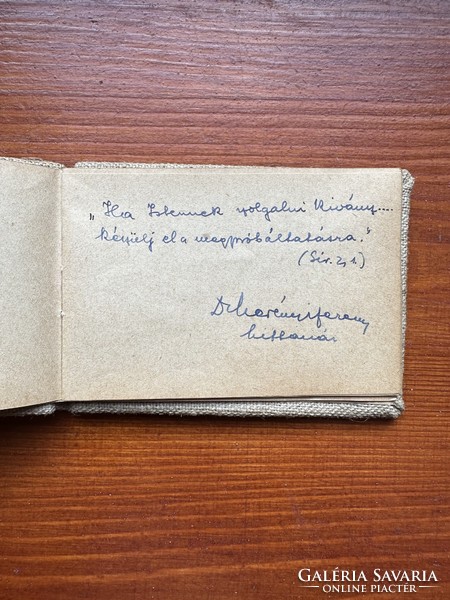 „Ha Istennek szolgalni kivány....
készülj el a megpróbáltatásra."
(Sir. 2,1.)
Dr
hittanár
GALÉRIA SAVARIA
ONLINE PIACTÉR